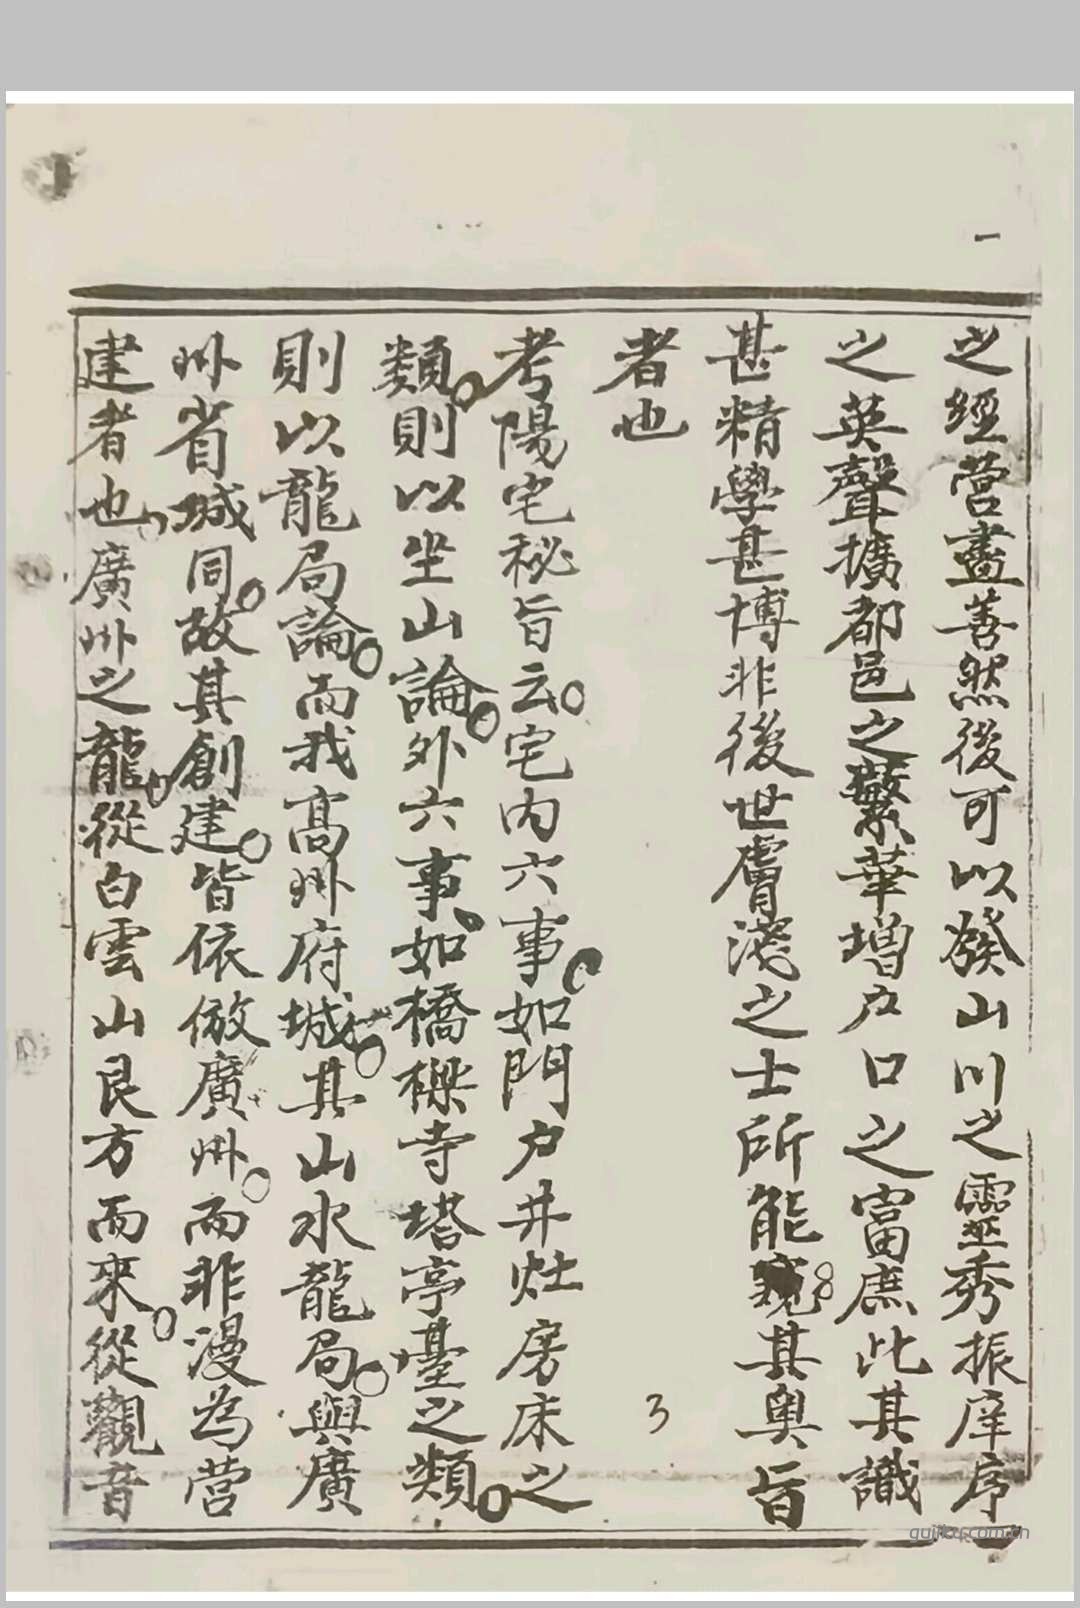 一
之經营盡善然後可以發山川之靈秀振庠序
之英聲擴都邑之繁華增户口之富庶此其識
甚精學甚博非後世膚淺之士所能窺其奥旨
者也
3
考陽宅秘旨云宅内六事如門户井灶房床之
類則以坐山論外六事如橋樑寺塔亭臺之類
則以龍局論而我髙州府城其山水龍局與廣
州省城同故其創建皆依倣廣州而非漫為营
建者也廣州之龍從白雲山艮方而來從觀音